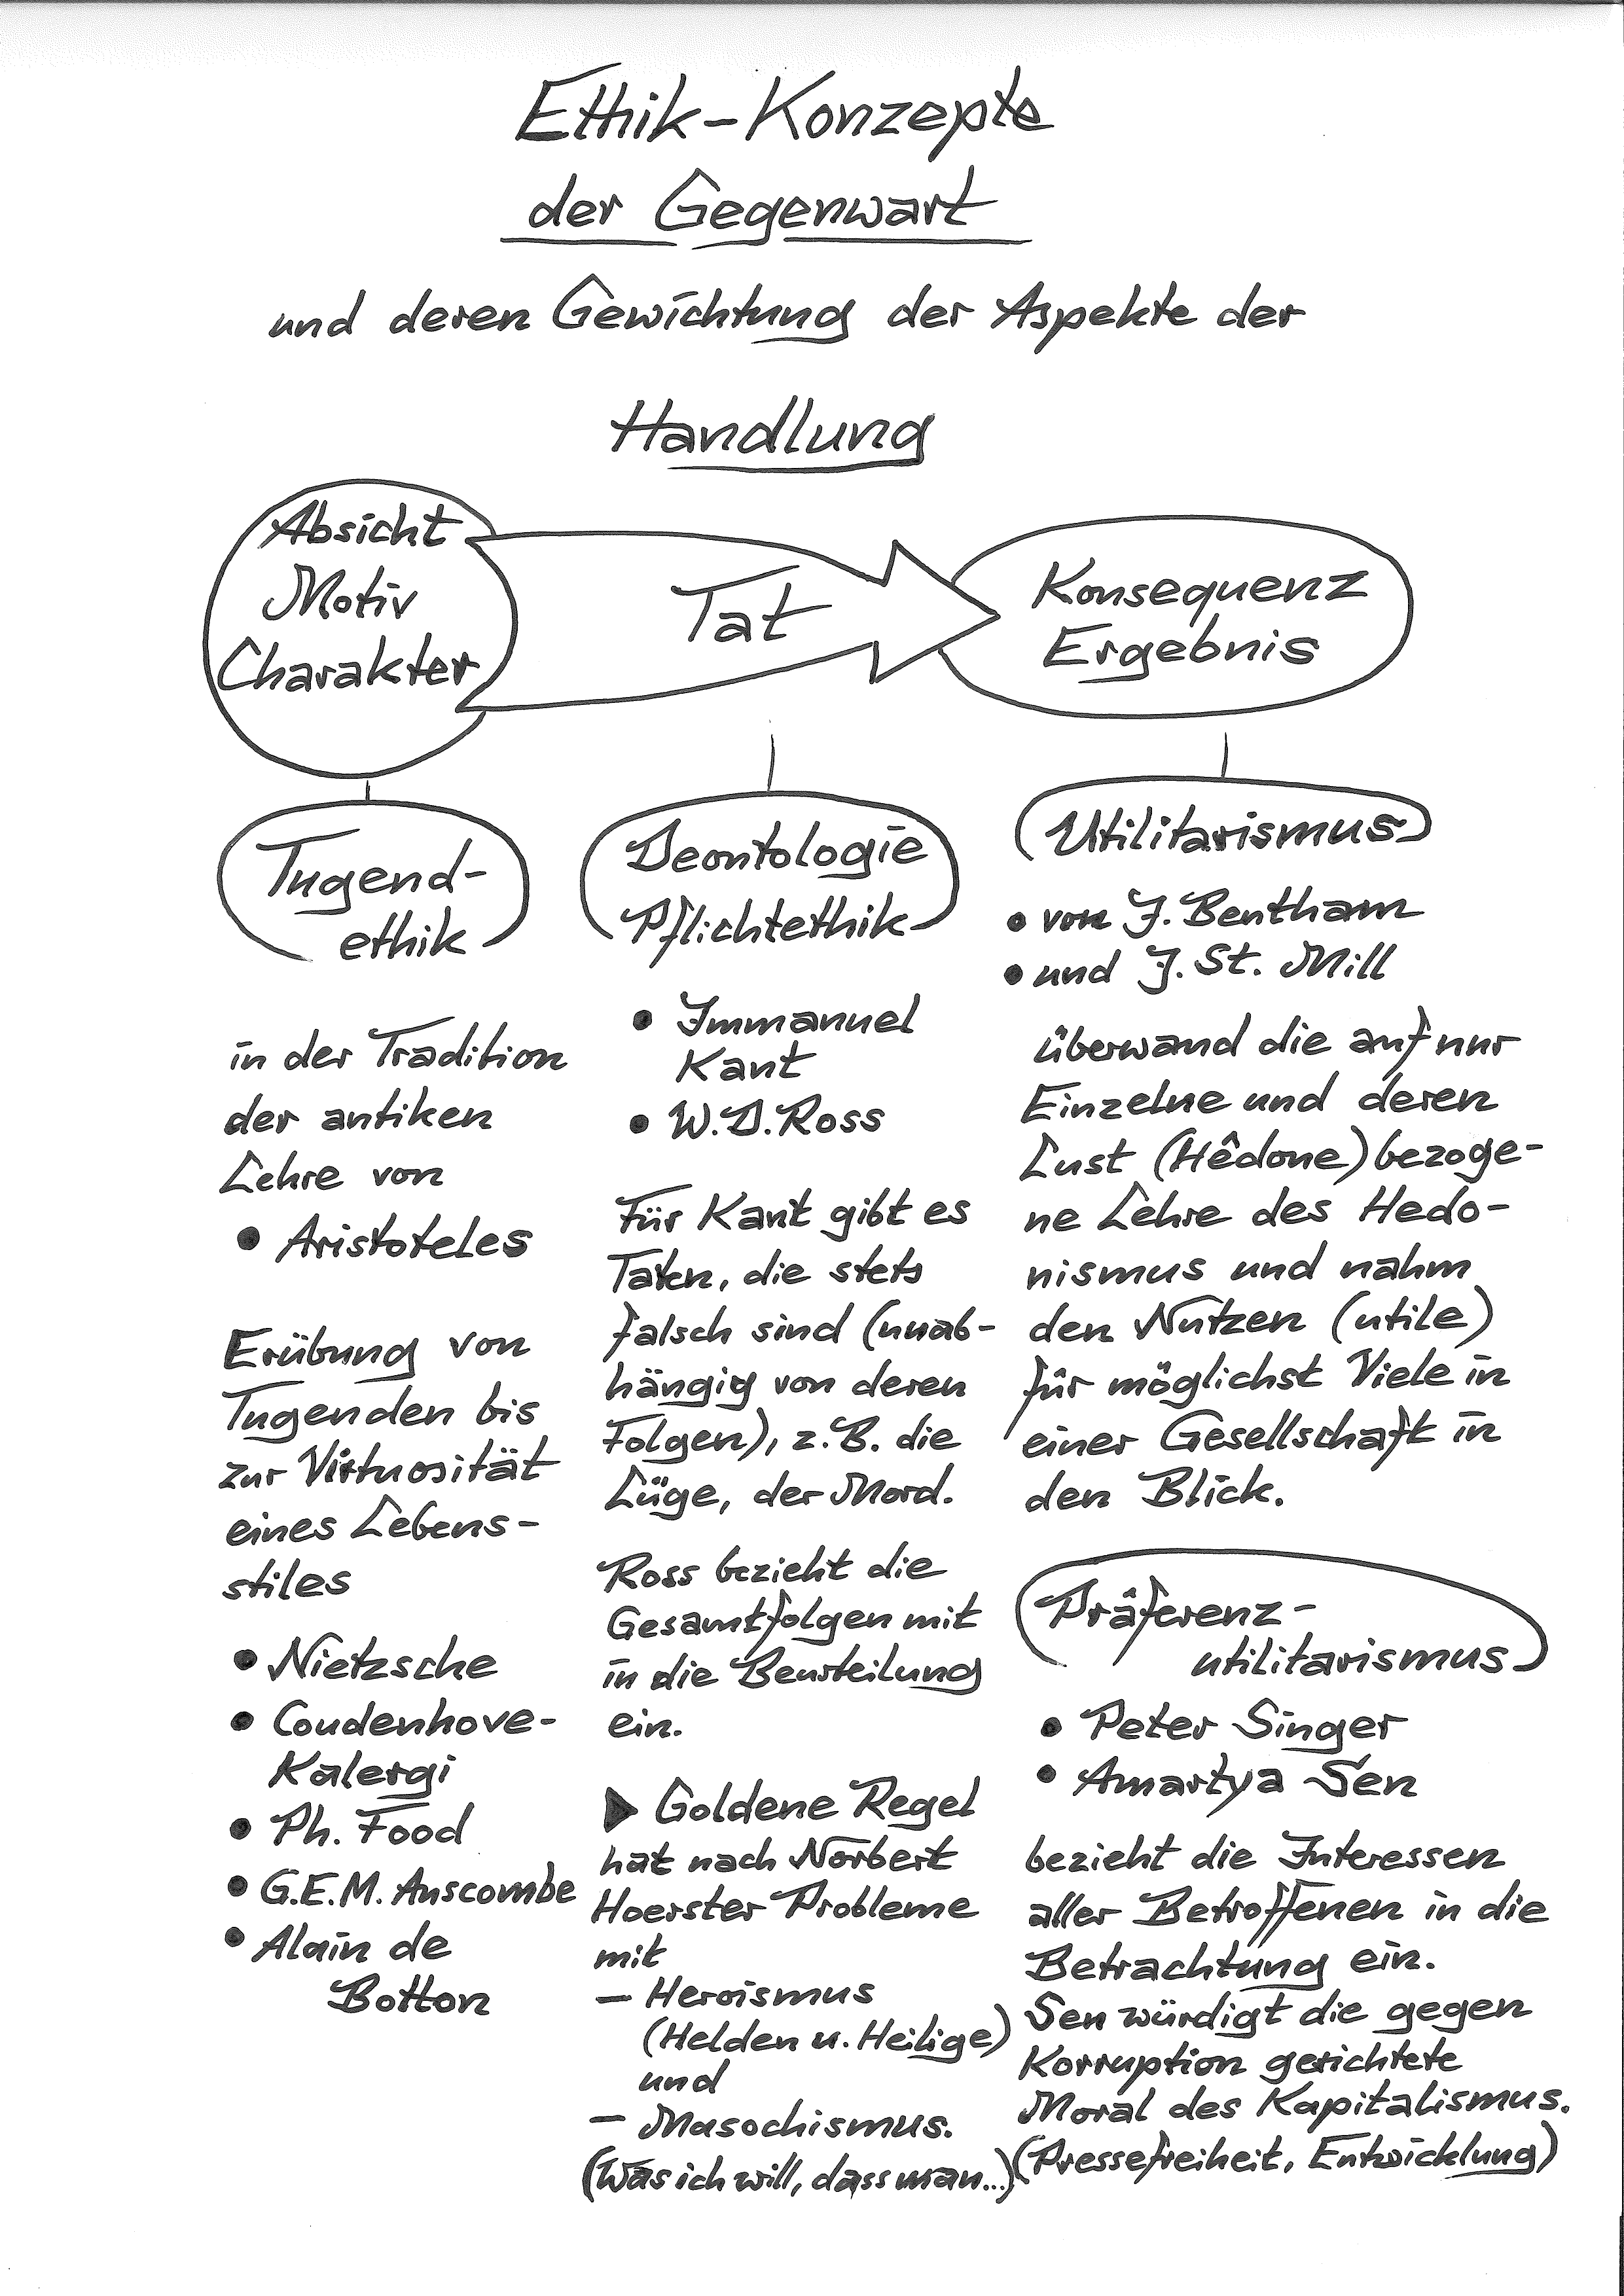 Ethik-Konzepte
der Gegenwart
und deren Gewichtung der Aspekte der
Handlung
Absicht
Motiv
Charakter
Tat
Konsequenz
Ergebnis
Tugend-
ethik
in der Tradition
der antiken
Lehre von
• Aristoteles
Erübung von
Tugenden bis
zur Virtuosität
eines Lebens-
stiles
• Nietzsche
• Coudenhove-
Kalergi
• Ph. Food
• G.E.M. Anscombe
• Alain de
Botton
Deontologie
Pflichtethik
• Immanuel
Kant
• W.D. Ross
Für Kant gibt es
Taten, die stets
falsch sind (unab-
hängig von deren
Folgen), z.B. die
Lüge, der Mord.
Ross bezieht die
Gesamtfolgen mit
in die Beurteilung
ein.
▶ Goldene Regel
hat nach Norbert
Hoerster Probleme
mit
– Heroismus
(Helden u. Heilige)
und
– Masochismus.
(Was ich will, dass man...)
Utilitarismus
• von J. Bentham
• und J. St. Mill
überwand die auf nur
Einzelne und deren
Lust (Hêdone) bezoge-
ne Lehre des Hedo-
nismus und nahm
den Nutzen (utile)
für möglichst Viele in
einer Gesellschaft in
den Blick.
Präferenz-
utilitarismus
• Peter Singer
• Amartya Sen
bezieht die Interessen
aller Betroffenen in die
Betrachtung ein.
Sen würdigt die gegen
Korruption gerichtete
Moral des Kapitalismus.
(Pressefreiheit, Entwicklung)